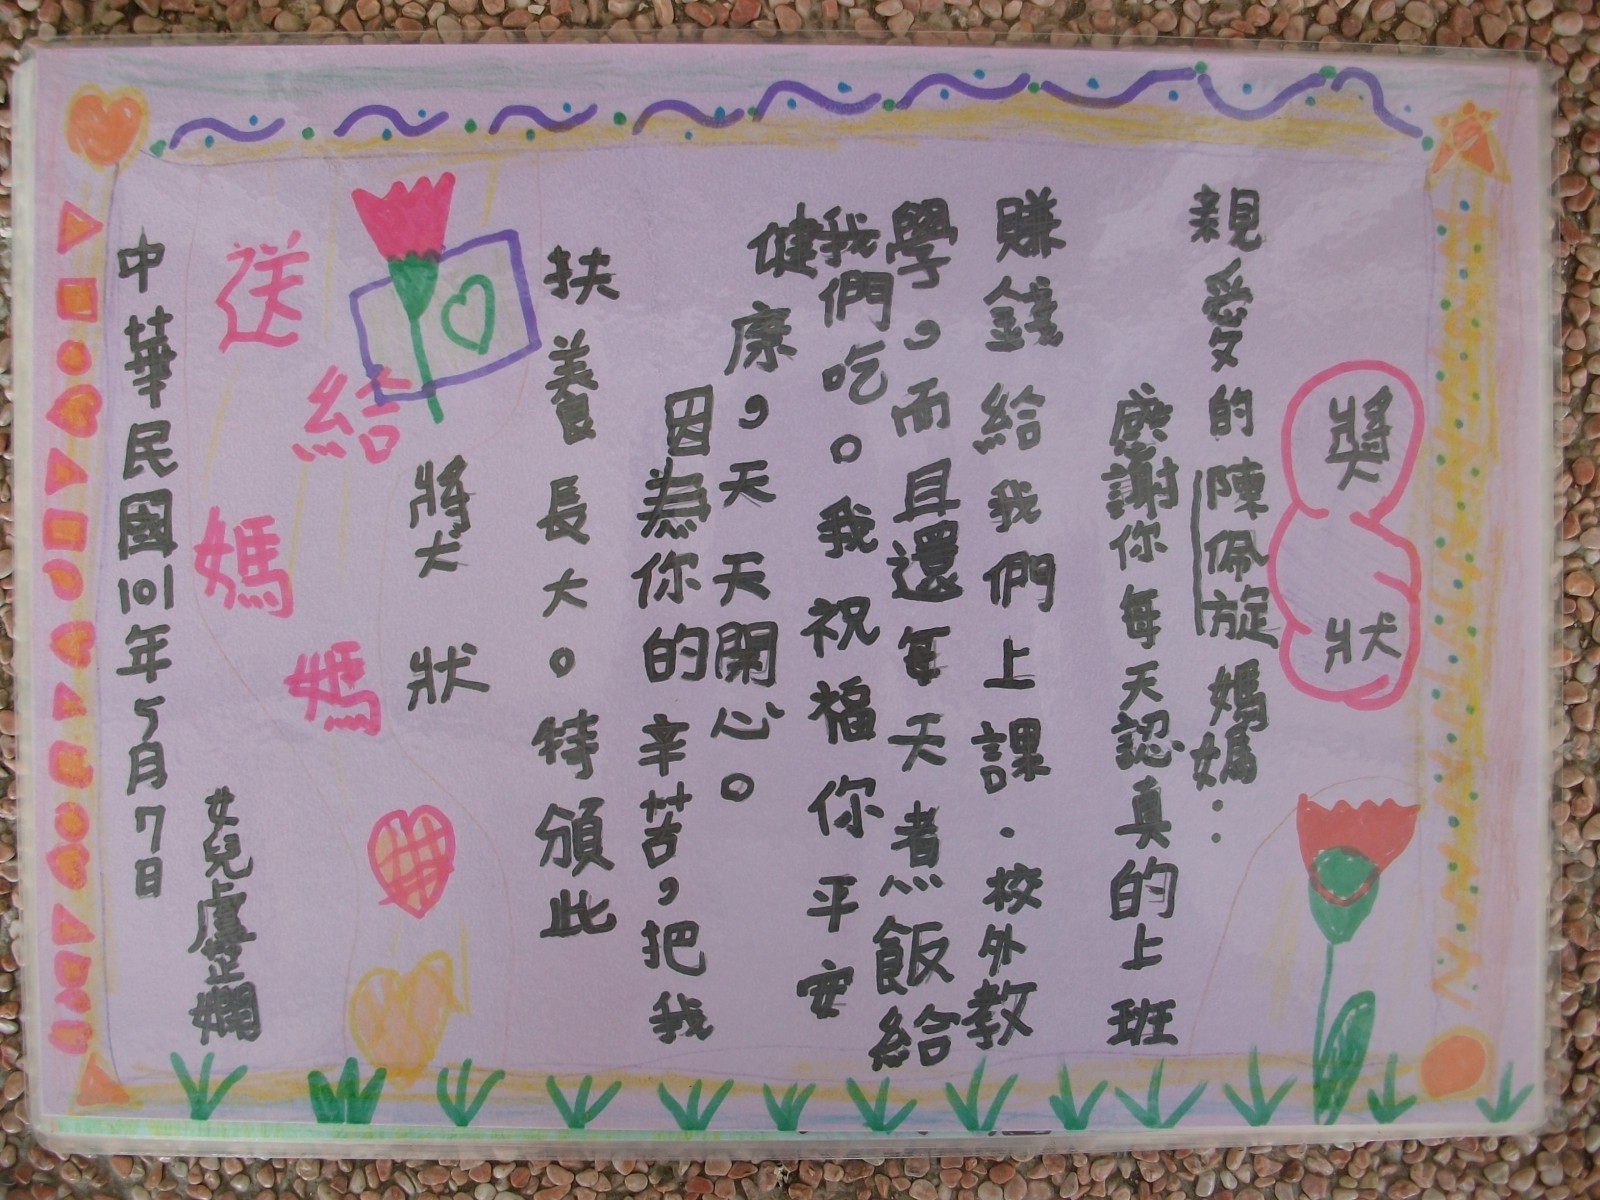 獎狀
親愛的陳佩旋媽媽：
感謝你每天認真的上班
賺錢給我們上課．校外教
學，而且還每天煮飯給
我們吃。我祝福你平安
健康，天天開心。
因為你的辛苦，把我
扶養長大。特頒此
獎狀
送給媽媽
女兒盧芷嫻
中華民國101年5月7日